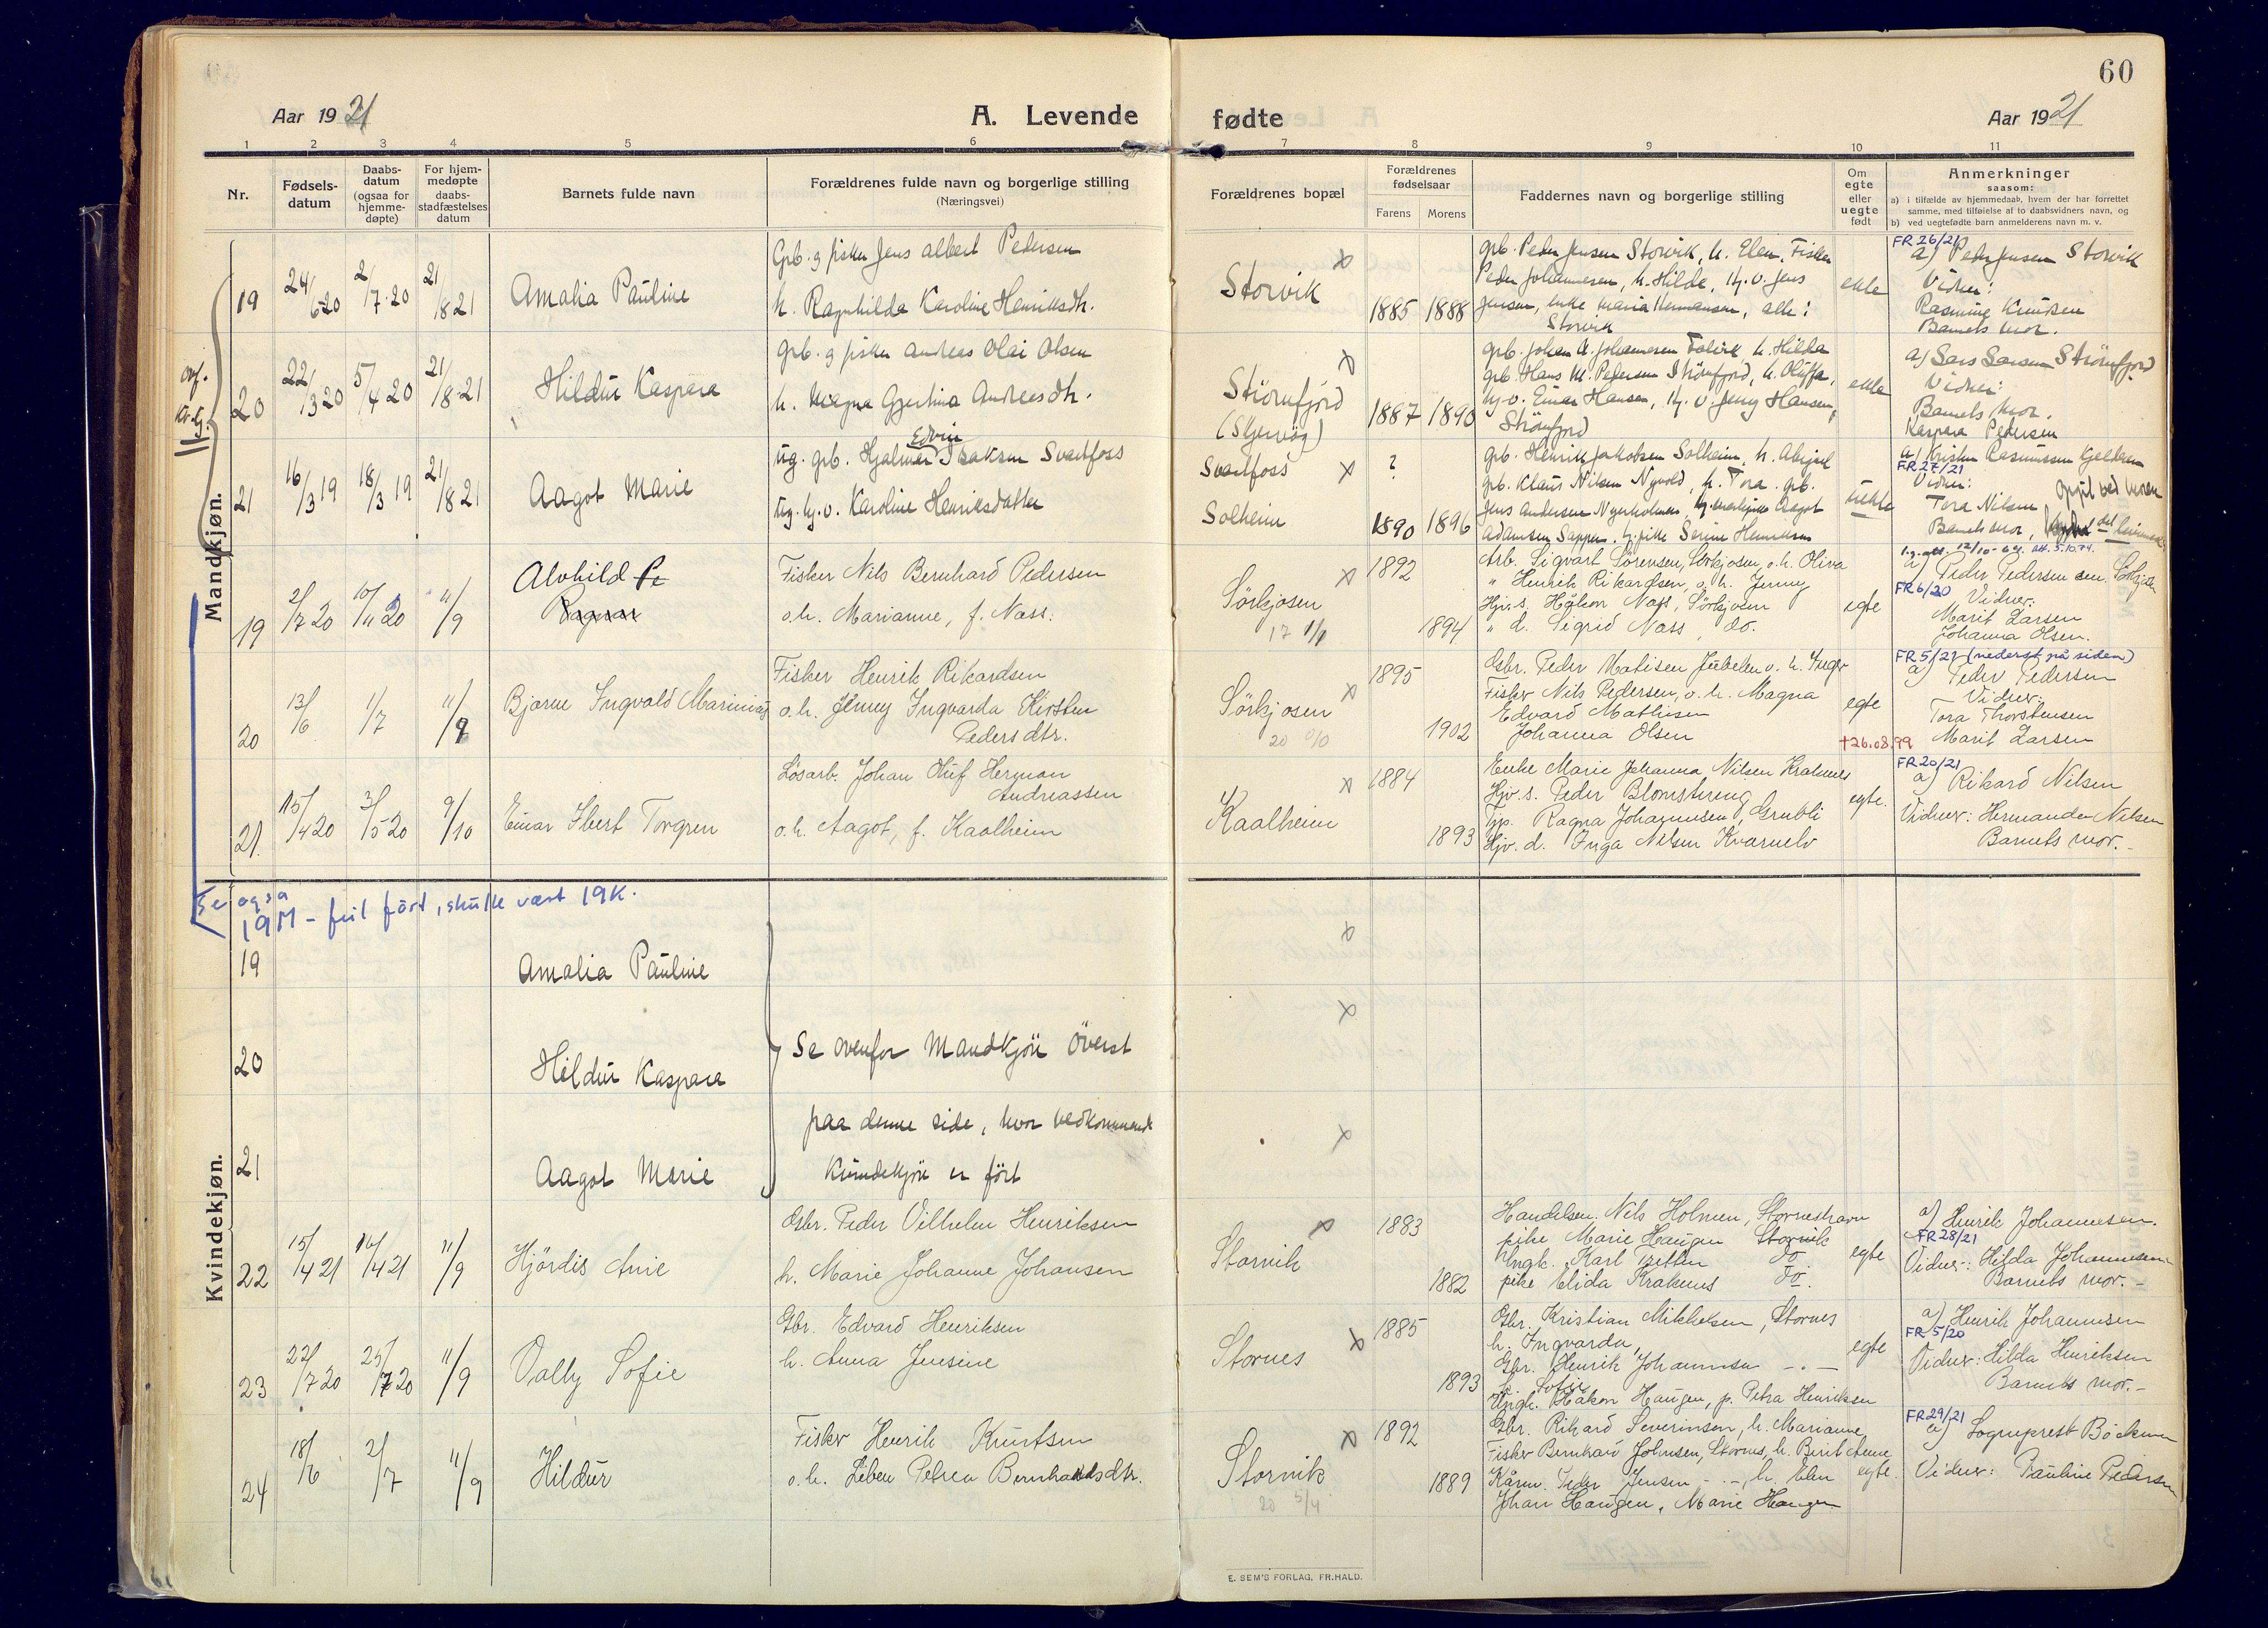 60
Aar 1921
A. Levende
fødte
Aar 1921
1 2 3 4 5 6 7 8 9 10 11
Nr.
Fødsels-
datum
Daabs-
datum
(ogsaa for
hjemme-
døpte)
For hjem-
medøpte
daabs-
stadfæstelses
datum
Barnets fulde navn
Forældrenes fulde navn og borgerlige stilling
(Næringsvei)
Forældrenes bopæl
Forældrenes
fødselsaar
Farens Morens
Faddernes navn og borgerlige stilling
Om
egte
eller
uegte
født
Anmerkninger
saasom:
a) i tilfælde av hjemmedaab, hvem der har forrettet
samme, med tilføielse af to daabsvidners navn, og
b) ved uegtefødte barn anmelderens navn m. v.
Mandkjøn.
19
24/6 20
2/7 20
21/8 21
Amalia Pauline
Grb. g fisker Jens Albert Pedersen
h. Ragnhilda Karoline Henriksdtr.
Storvik
1885 1888
grb. Peder Jensen Storvik, h. Elen, Fisker
Peder Johannesen, h. Hilda, Ug. v. Jens
Jensen, enke Maria Hermansen, alle:
Storvik
ekte
FR 26/21
a) Peder Jensen Storvik
Vidner:
Rasmine Knudsen
Barnets mor.
20
22/3 20
5/4 20
21/8-21
Hildur Kaspara
Grb. g fisker Andreas Olai Olsen
h. Magna Gjertina Andreasdtr.
Strömfjord
(Skjervøy)
1887 1890
grb. Johan A. Johannesen h. Hilda
grb. Hans M. Pedersen Strömfjord, h. Oluffa,
Ug. v. Einar Hansen, Ug. v. Jenny Hansen,
Strömfjord
ekte
a) Lars Larsen Strömfjord
Vidner:
Barnets mor.
Kaspara Pedersen
21
16/3 19
18/3 19
21/8 21
Aagot Marie
Ug. grb. Hjalmar Edvin Isaksen Svartfoss
Ug. Hj. v. Karoline Henriksdatter
Svartfoss
Solheim
?
1890 1896
grb. Henrik Jakobsen Solheim, h. Abigael
grb. Klaus Nilsen Nyvold, h. Tora. grb.
Jens Andersen Nyerholmen, Aagot
Adamsen Sappen, Ug. pike Serine Henriksen
uekte
a) Kristen Rasmussen Gjeldsen
FR 27/21
Vidner:
Tora Nilsen
Barnets mor,
19
2/7 20
10/11 20
11/9
Alvhild P.
Ragnar
Fisker Nils Bernhard Pedersen
o. h. Marianne, f. Næss.
Sörkjosen
17 1/1
1892
1894
Arb. Sigvart Sörensen, Sörkjosen, o. h. Oliva
" Henrik Rikardsen, o. h. Jenny
Hjv. s. Håkon Næss, Sörkjosen
" d. Sigrid Næss, do.
egte
a) Peder Pedersen sen. Sörkjosen
FR 6/20
Vidner:
Marit Larsen
Johanna Olsen.
20
13/6
1/7
11/9
Bjarne Ingvald Marinius
Fisker Henrik Rikardsen
o. h. Jenny Ingvarda Kirsten
Pedersdtr.
Sörkjosen
1895
1902
Gbr. Peder Matisen Jubelen o. h. Inger
Fisker Nils Pedersen, o. h. Magna
Edvard Mathisen
Johanna Olsen
egte
†26.08.99
FR 5/21 (nederst på siden)
a) Peder Pedersen
Vidner:
Tora Thorstensen
Marit Larsen
21
15/4 20
3/5 20
9/10
Einar Ibert Torgren
Løsarb. Johan Oluf Herman
Andreassen
o. h. Aagot, f. Kaalheim
Kaalheim
1884
1893
Enke Marie Johanna Nilsen Kraknes
Hjv. s. Peder Blomstereng
Tjp. Ragna Johannesen, Grubli
Hjv. d. Inga Nilsen Kvarnelv
egte.
FR 20/21
a) Rikard Nilsen
Vidner: Hermanda Nilsen
Barnets mor.
Se også
19M - feil ført, skulle vært 19K.
Kvindekjøn.
19
Amalia Pauline
20
Hildur Kaspara
21
Aagot Marie
Se ovenfor Mandkjön Överst
paa denne side, hvor vedkommende
Kvindekjön er fört
22
15/4 21
16/4 21
11/9
Hjördis Anie
Gbr. Peder Vilhelm Henriksen
h. Marie Johanne Johansen
Storvik
1883
1882
Handelsm. Nils Holmen, Storneshavn
pike Marie Haugen Storvik
Ungk. Karl Zetter do
pike Elida Kraknes do.
egte
a) Henrik Johannesen.
FR 28/21
Vidner: Hilda Johannesen
Barnets mor. -
23
22/7 20
25/7 20
11/9
Vally Sofie
Gbr. Edvard Henriksen
h. Anna Jensine
Stornes
1885
1893
Gbr. Kristian Mikkelsen, Stornes
h. Ingvarda,
Gbr. Henrik Johannesen - . -
h. Sofie
Ungk. Håkon Haugen, p. Petra Henriksen
egte
a) Henrik Johannesen
FR 5/20
Vidner: Hilda Henriksen
Barnets mor. -
24
18/6
2/7
11/9
Hildur
Fisker Henrik Knutsen
o. h. Liben Petrea Bernhardsdtr.
Storvik
20 5/4
1892
1889
Gbr. Rikard Severinsen, h. Marianne
Fisker Bernhard Johnsen, Stornes, h. Berit Anne
Kårm. Peder Jensen - . -, h. Elen
Johan Haugen, Marie Haugen
egte.
FR 29/21
a) Sogneprest Böckman
Vidner: Pauline Pedersen
E. SEM'S FORLAG, FR.HALD.